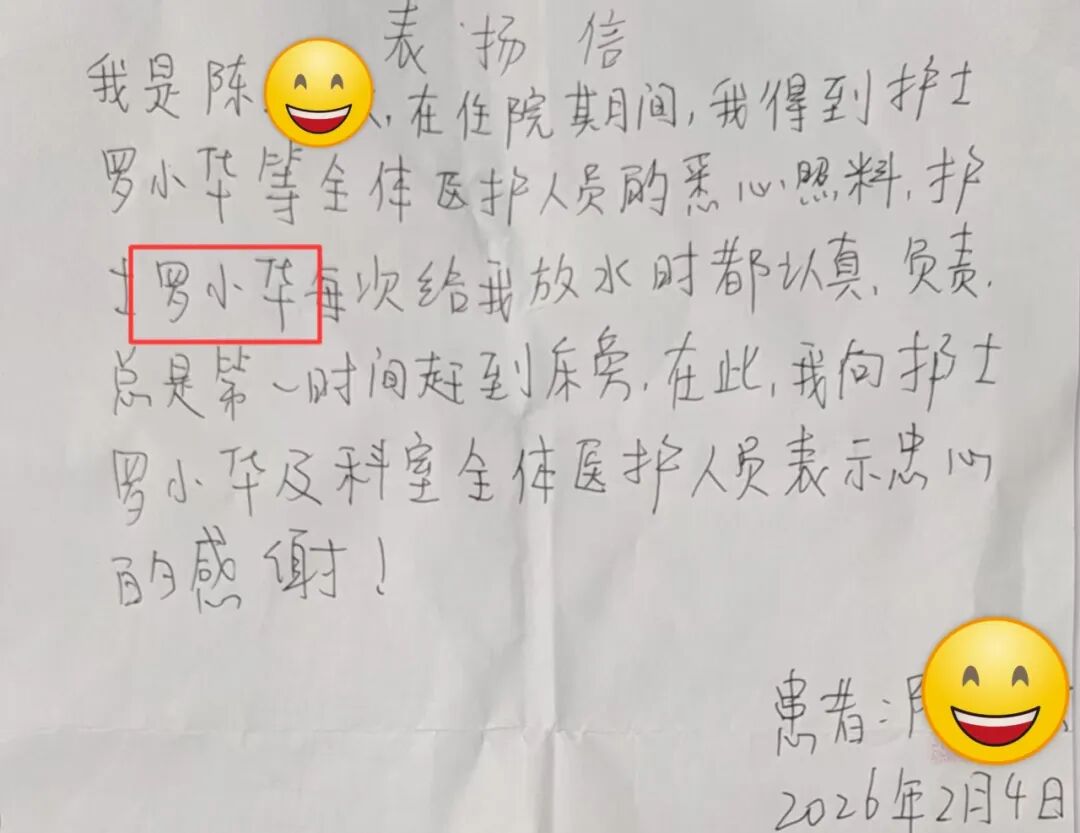 表扬信
我是陈,在住院其月间,我得到护士
罗小华等全体医护人员的悉心照料,护
士罗小华每次给我放水时都认真、负责,
总是第一时间赶到床旁,在此,我向护士
罗小华及科室全体医护人员表示忠心
的感谢!
患者:陈
2026年2月4日